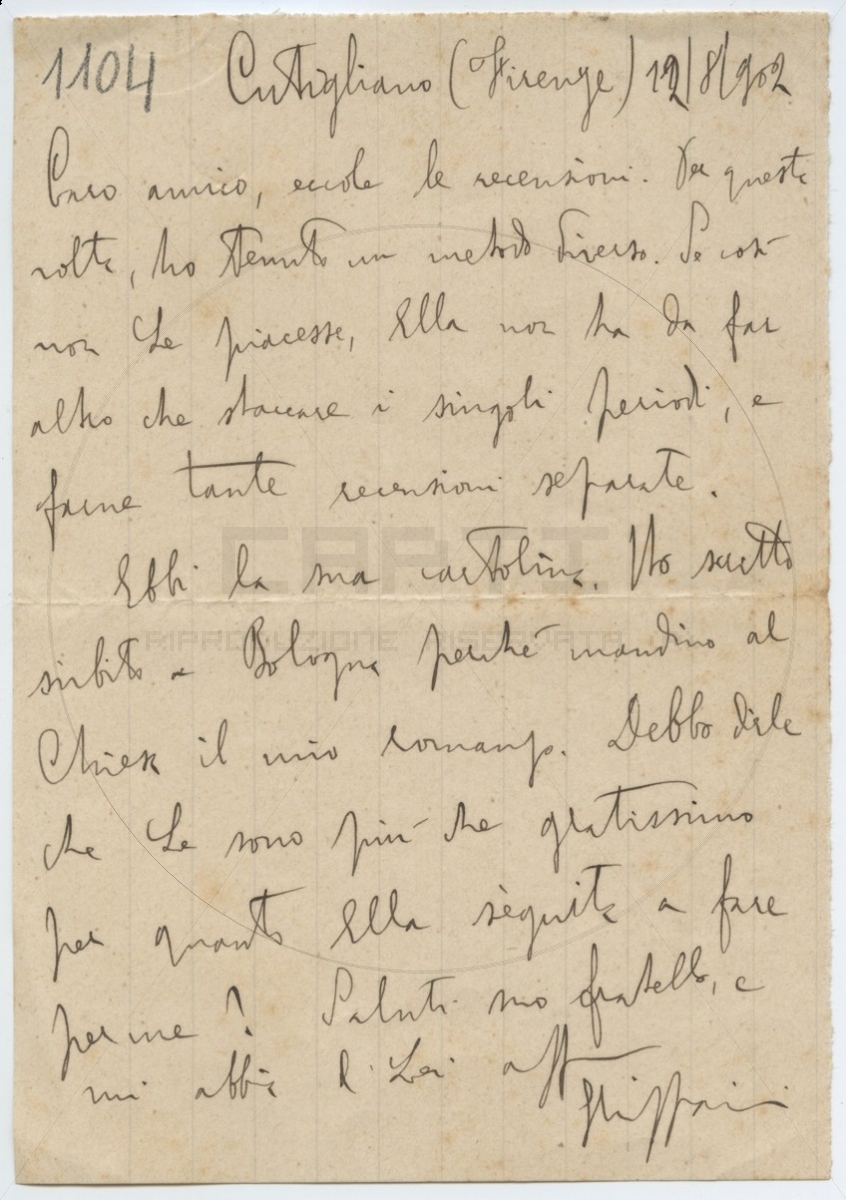 1104 Cutigliano (Firenze) 12/8/902
Caro amico, eccole le recensioni. Per questa
volta, ho tenuto un metodo diverso. Se così
non Le piacesse, Ella non ha da far
altro che staccare i singoli periodi, e
farne tante recensioni separate.
Ebbi la sua cartolina. Ho scritto
CARTI
sùbito a Bologna perché mandino al
RIPRODUZIONE RISERVATA
Chiesa il mio romanzo. Debbo dirle
che Le sono più che gratissimo
per quanto Ella sèguita a fare
per me? Saluti suo fratello, e
mi abbia di Lei aff